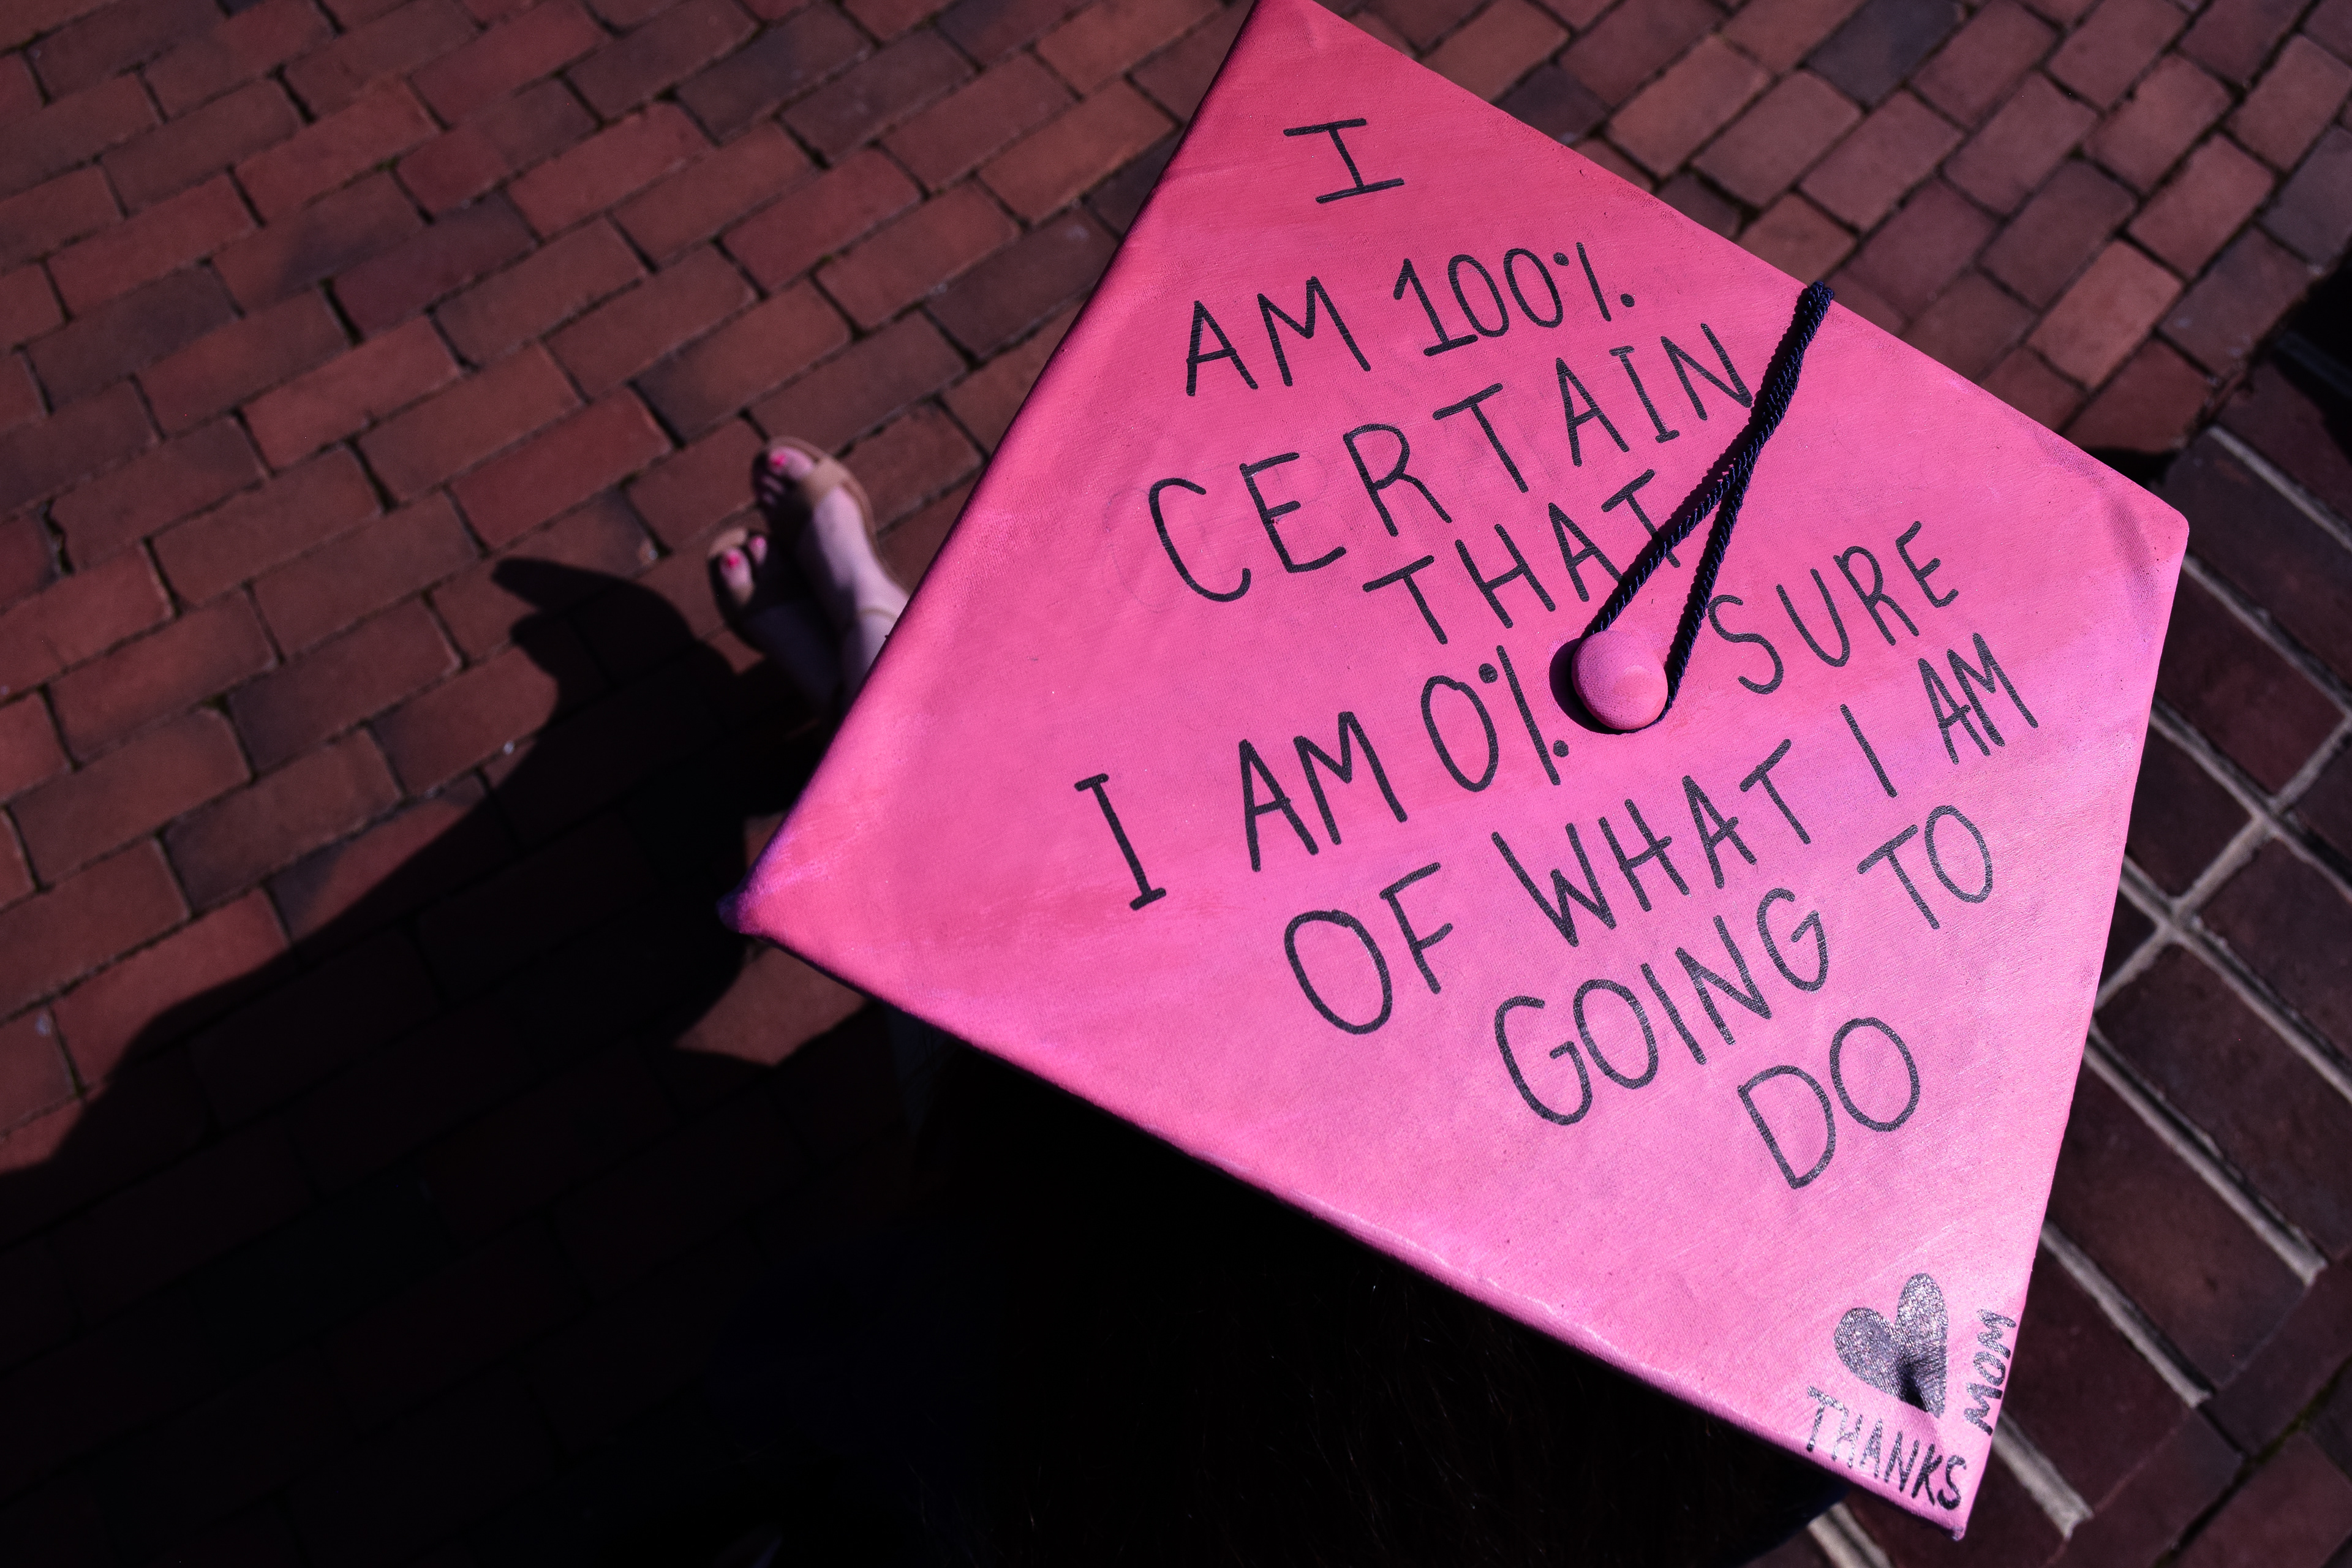 I
AM 100%
CERTAIN
THAT
I AM 0% SURE
OF WHAT I AM
GOING TO
DO
THANKS
MOM